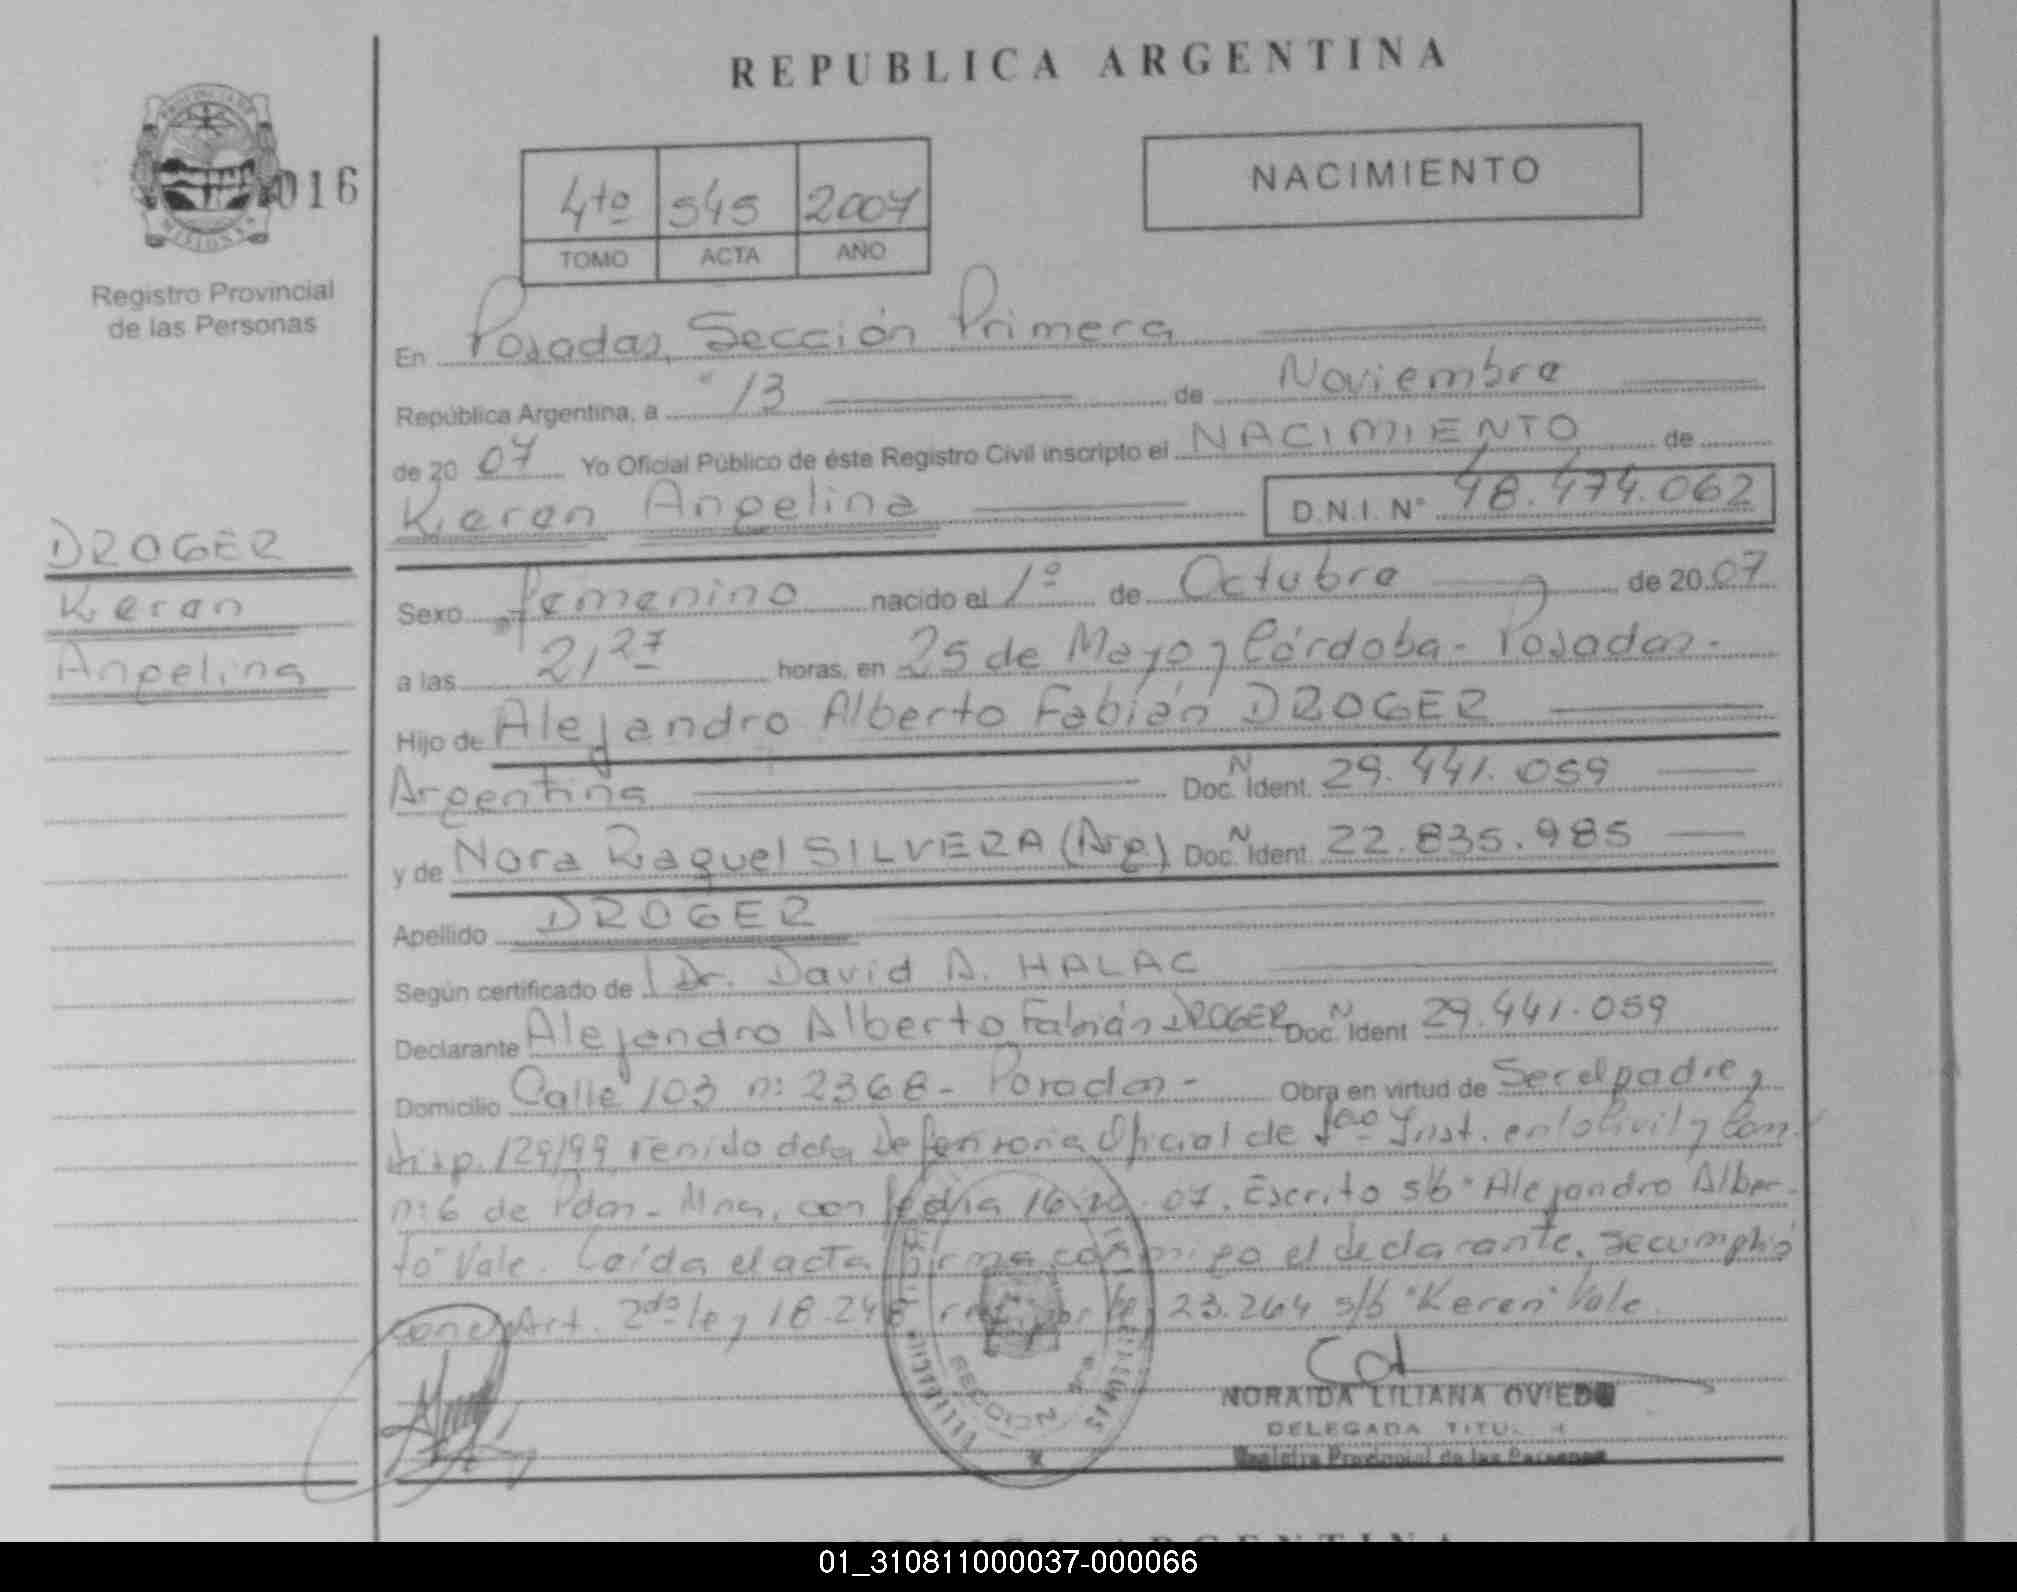 REPUBLICA ARGENTINA
016
MISIONES
Registro Provincial
de las Personas
4to 545 2007
TOMO ACTA AÑO
NACIMIENTO
En Posadas, Sección Primera
República Argentina, a 13 de Noviembre
de 20 07 Yo Oficial Público de éste Registro Civil inscripto el NACIMIENTO de
Keren Angelina D.N.I. N° 48.474.062
DROGER
Keren
Angelina
Sexo femenino nacido el 1° de Octubre de 20 07
a las 21,27 horas, en 25 de Mayo y Córdoba - Posadas -
Hijo de Alejandro Alberto Fabián DROGER
Argentina Doc. N Ident. 29.441.059
y de Nora Raquel SILVERA (Arg) Doc. N Ident. 22.835.985
Apellido DROGER
Según certificado de Dr. David A. HALAC
Declarante Alejandro Alberto Fabián DROGER Doc. N Ident 29.441.059
Domicilio Calle 103 n: 2368 - Posadas - Obra en virtud de Ser el padre y
Disp. 129/99 venido de la Defensoria Oficial de 1ra Inst. en lo Civil y Com.
n: 6 de Pdas - Mnes, con fecha 16.10.07. Escrito s/b "Alejandro Alber-
to" Vale. Leída el acta firma conmigo el declarante. Se cumplió
con el Art. 2do ley 18.248 por ley 23.264 s/b "Keren" Vale.
SECCION 1ra
NORAIDA LILIANA OVIEDO
DELEGADA TITUL
Registro Provincial de las Personas
01_310811000037-000066